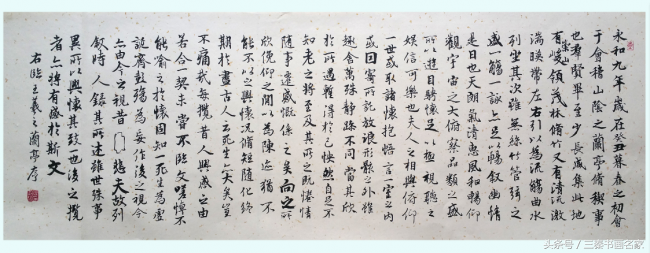 永和九年歲在癸丑暮春之初會
于會稽山陰之蘭亭脩稧事
也羣賢畢至少長咸集此地
有崇山峻領茂林脩竹又有清流激
湍暎帶左右引以為流觴曲水
列坐其次雖無絲竹管弦之
盛一觴一詠亦足以暢叙幽情
是日也天朗氣清惠風和暢仰
觀宇宙之大俯察品類之盛
所以遊目騁懷足以極視聽之
娛信可樂也夫人之相與俯仰
一世或取諸懷抱悟言一室之內
或因寄所託放浪形骸之外雖
趣舍萬殊靜躁不同當其欣
於所遇暫得於己怏然自足不
知老之將至及其所之既惓情
隨事遷感慨係之矣向之所
欣俛仰之間以為陳迹猶不
能不以之興懷況脩短隨化終
期於盡古人云死生亦大矣豈
不痛哉每攬昔人興感之由
若合一契未嘗不臨文嗟悼不
能喻之於懷固知一死生為虛
誕齊彭殤為妄作後之視今
亦由今之視昔悲夫故列
叙時人錄其所述雖世殊事
異所以興懷其致一也後之攬
者亦將有感於斯文
右臨王羲之蘭亭序
头条号 / 三秦书画名家